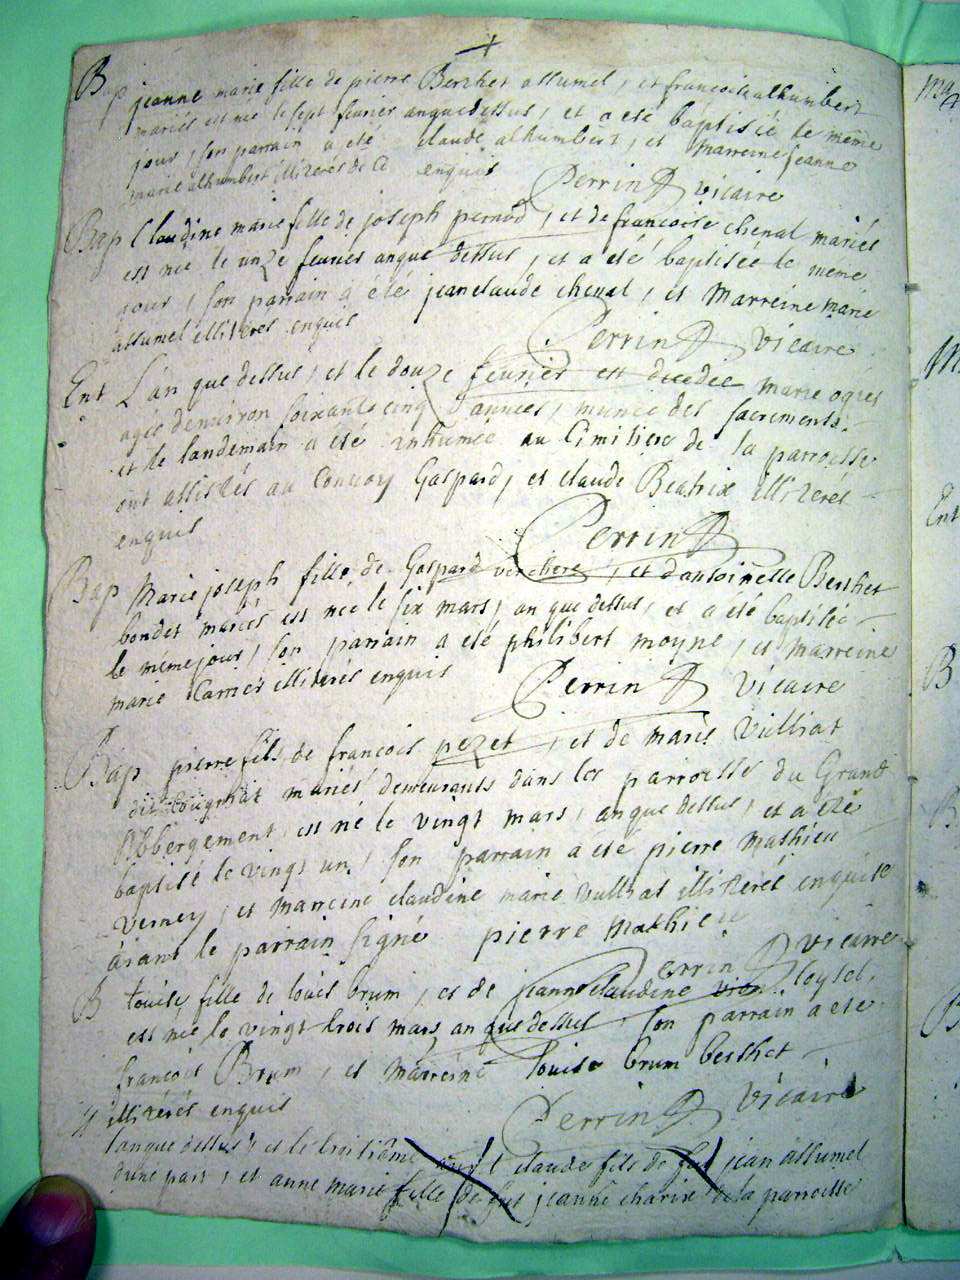 Bap jeanne marie fille de pierre Berthet allumel, et francoise alhumbert
mariés est née le sept fevrier anquedessus, et a eté baptisée le même
jour, son parrain a été claude alhumbert, et marreine jeanne
marie alhumbert illiterés de ce enquis Perrin vicaire
Bap Claudine marie fille de joseph pernod, et de francoise chenal mariés
est née le unze fevrier anque dessus, et a été baptisée le meme
jour, son parrain a été jean claude chenal, et Marreine marie
allumel illiterés enquis Perrin Vicaire
Ent L'an que dessus, et le douze fevrier est decedée marie ogier
agée d'environ soixante cinq d'années, munie des sacrements.
et le landemain a été inhumée au Cimitiere de la parroisse
ont assistés au Convoy Gaspard, et claude Beatrix illiterés
enquis Perrin
Bap Marie joseph fille de Gaspard verchere, et d'antoinette Berthet
bondet mariés est née le six mars, an que dessus, et a été baptisée
le meme jour, son parrain a eté philibert moyne, et marreine
marie Carrier illiterés enquis Perrin Vicaire
Bap pierre fils de francois pezet, et de marie Vulliat
dit mariés demeurants dans les parroisse du Grand
Abbergement, est né le vingt mars, anque dessus, et a été
baptisé le vingt un, son parrain a eté pierre mathieu
verney, et marreine claudine marie vulliat illiterés enquise
aiant le parrain signé pierre Mathieu
Perrin vicaire
B Louise, fille de louis brum, et de jeanne claudine loytet
est née le vingt trois mars, an que dessus, son parrain a eté
francois Brum, et marreine louise brum berthet
illiterés enquis Perrin Vicaire
l'anque dessus, et le troisième avril claude fils de fut jean allumel
d'une part, et anne marie fille de fut jeanne charix de la parroisse
Ent
B
B
B